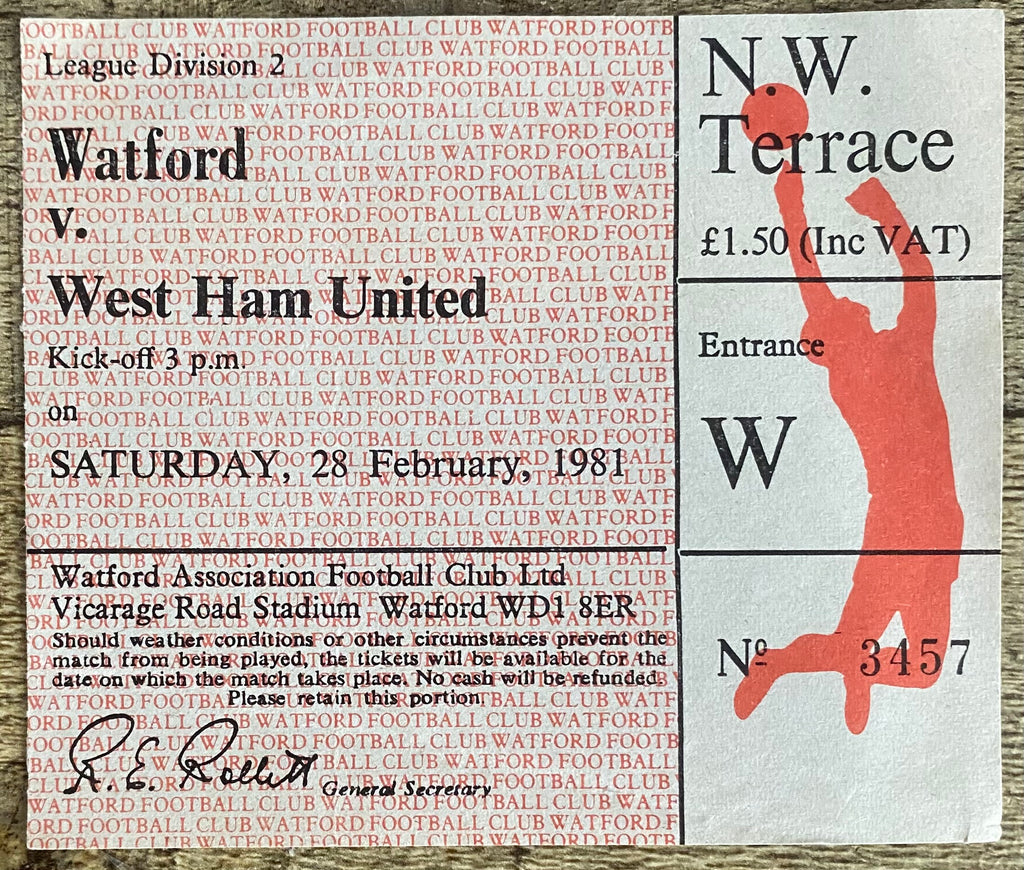 League Division 2
Watford
v.
West Ham United
Kick-off 3 p.m.
on
SATURDAY, 28 February, 1981
Watford Association Football Club Ltd
Vicarage Road Stadium Watford WD1 8ER
Should weather conditions or other circumstances prevent the
match from being played, the tickets will be available for the
date on which the match takes place. No cash will be refunded.
Please retain this portion.
R. E. Rollitt
General Secretary
N.W.
Terrace
£1.50 (Inc VAT)
Entrance
W
Nº 3457
WATFORD FOOTBALL CLUB